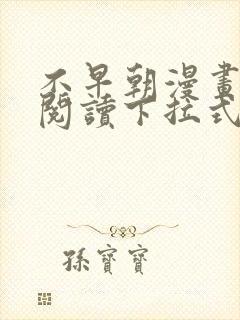 不早朝漫畫
閱讀下拉式
孫寶寶